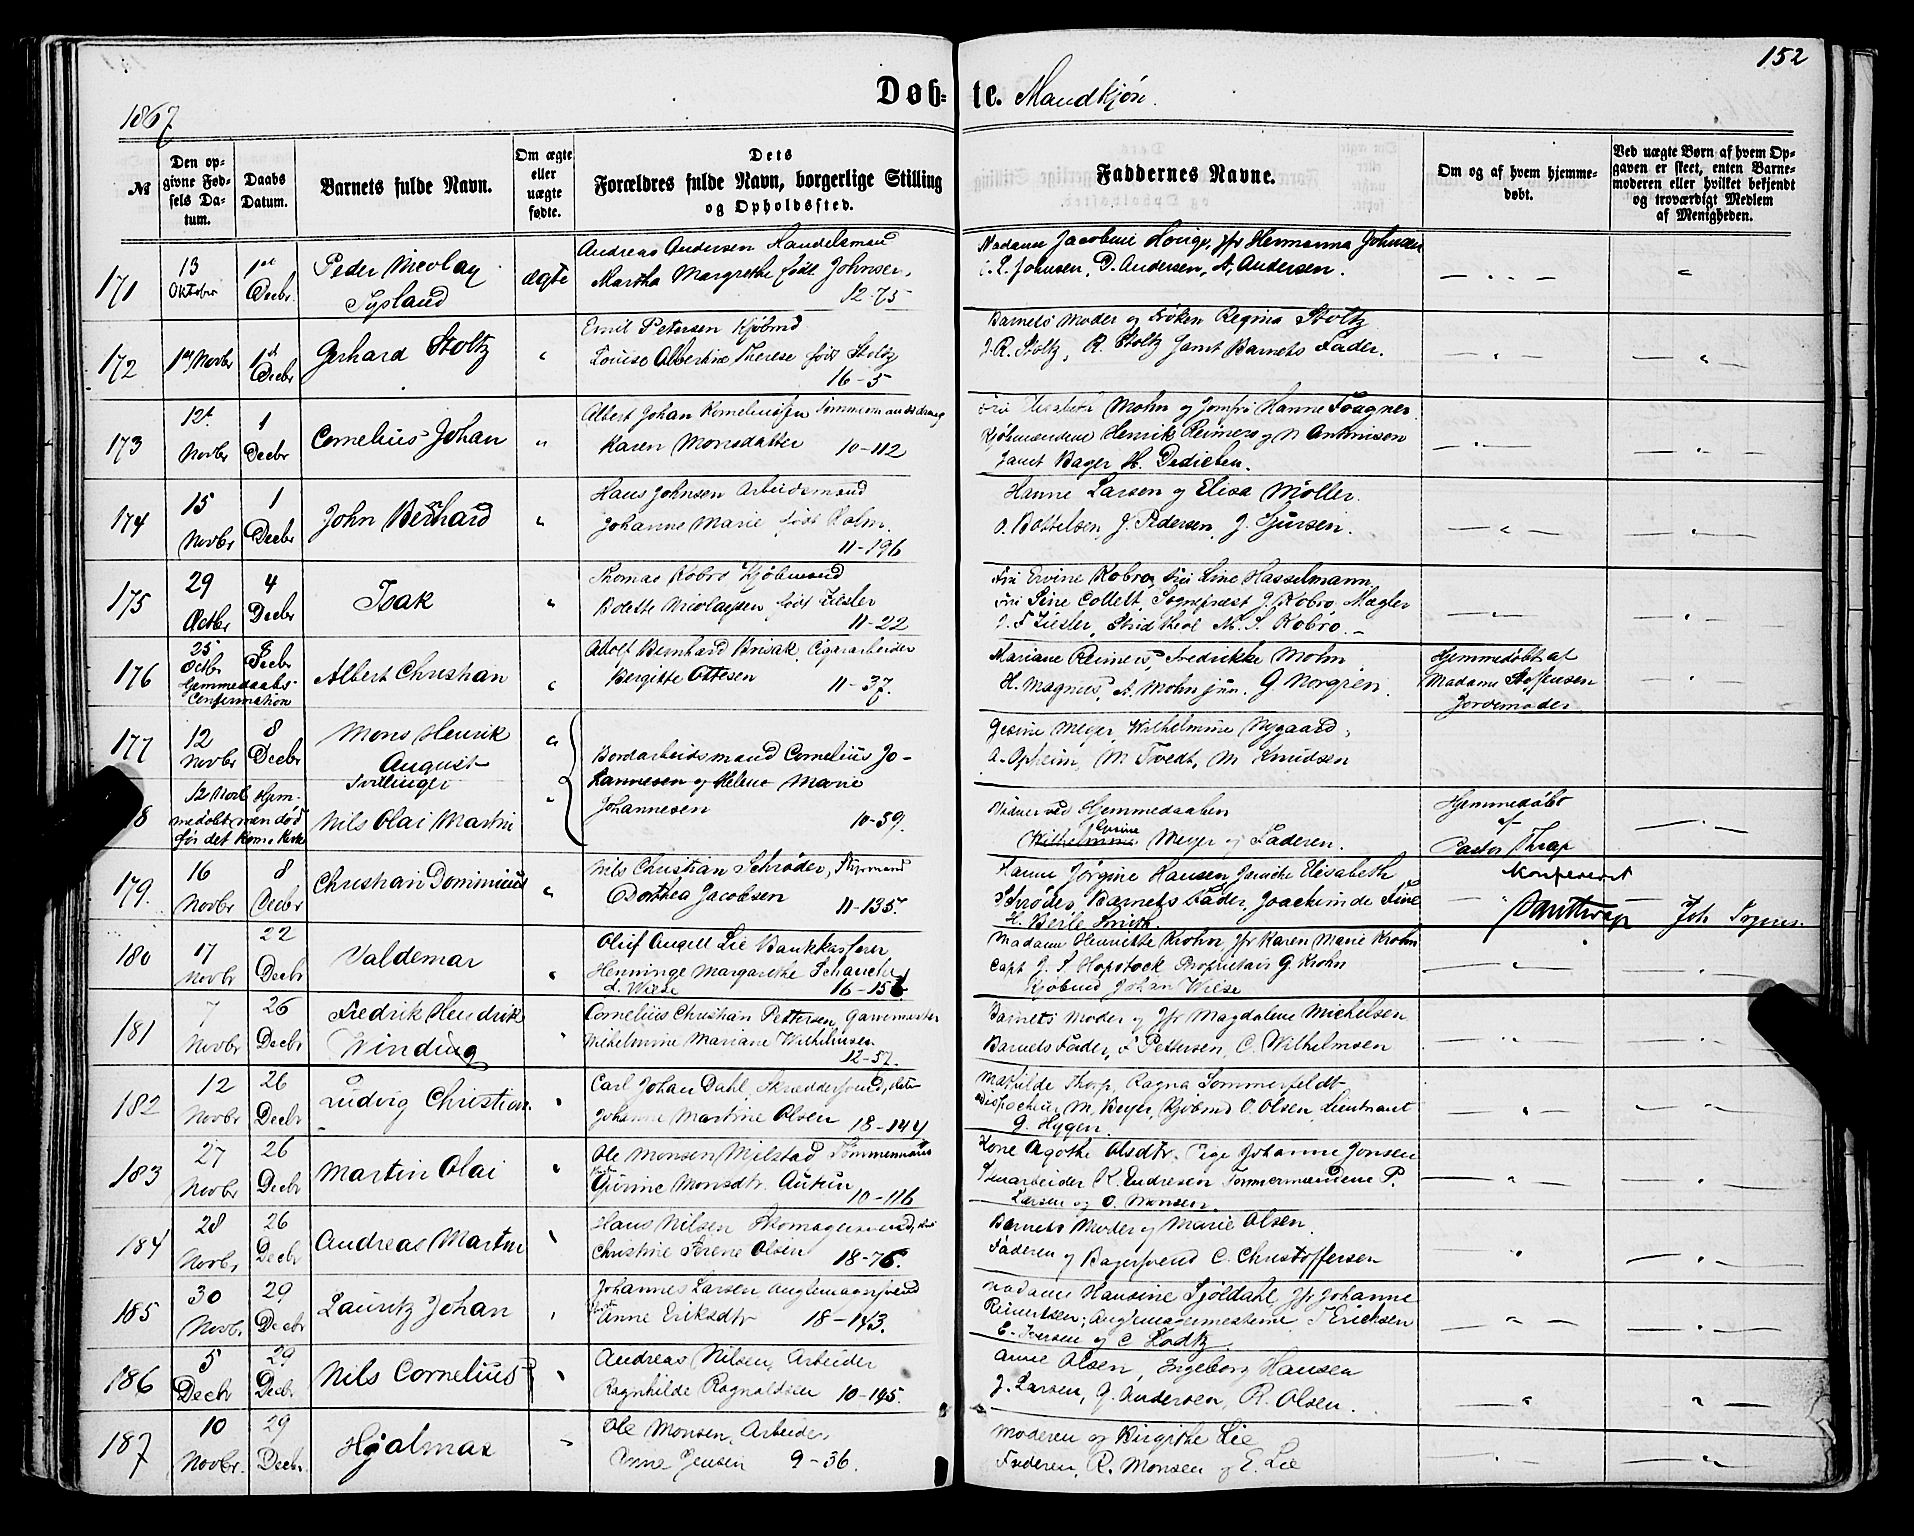 152
1867
Døb-te. Mandkjøn.
№
Den opgivne Fødsels Datum.
Daabs Datum.
Barnets fulde Navn.
Om ægte eller uægte fødte.
Dets Forældres fulde Navn, borgerlige Stilling og Opholdssted.
Faddernes Navne.
Om og af hvem hjemmedøbt.
Ved uægte Børn af hvem Opgaven er skeet, enten Barnemoderen eller hvilket bekjendt og troværdigt Medlem af Menigheden.
171 13 Oktober 1st Decbr Peder Nicolay Sysland ægte
Andreas Andersen Handelsmand
Martha Margrethe født Johnsen, 12-75
Madame Jacobine Houge, Jfr Hermanna Johnsen
Johnsen, D. Andersen, A. Andersen.
172 1st Novbr 1st Decbr Gerhard Stoltz "
Emil Petersen Kjøbmd
Louise Albertine Therese født Stoltz
16-5
Barnets Moder og Frøken Regina Stoltz
J. R. Stoltz, R. Stoltz samt Barnets Fader.
173 12t Novbr 1 Decbr Cornelius Johan "
Albert Johan Kornelius
Karen Monsdatter 10-112
Mohn og Jomfru Hanne Fougner
Kjøbmændene Henrik Reimers og
samt Bager H. Dedichen.
174 15 Novbr 1 Decbr John Bernhard "
Hans Johnsen Arbeidsmand
Johanne Marie født Holm.
11-196
Hanne Larsen og Elisa Møller.
O. Bottelsen, J. Pedersen, J. Sjursen.
175 29 Octbr 4 Decbr Isak "
Thomas Kobro Kjøbmand
Bolette Nicolaysen født Ziesler
11-22
Fru Ervine Kobro, Fru Line Hasselmann,
Fru Sine Collett, Sognepræst J. Kobro, Mægler
J. F. Ziesler, Stud. theol M. S. Kobro.
176 25 Octbr 8 Decbr Hjemmedaabs Confirmation
Albert Christian "
Adolf Bernhard Brisak, Cigararbeider
Bergitte Ottesen 11-37.
Mariane Reimers, Fredrikke Mohn
H. Magnus, A. Mohn jun. G Norgren.
Hjemmedøbt af
Madame Steffensen
Jordemoder
177 12 Novbr 8 Decbr Mons Henrik August "
Tvillinger
Bordarbeidsmand Cornelius Johannesen og Helene Marie
Johannesen 10-59.
Gesine Meyer, Wilhelmine Nygaard,
A. Opheim, M Tvedt, M Knudsen
8 12 Novb Hjemmedøbt men død før det kom i Kirke
Nils Olai Martin "
Vidner ved Hjemmedaaben
Gesine
Wilhelmine Meyer og Faderen.
Hjemmedøbt
af
Pastor Thrap
179. 16 Novbr 8 Decbr Christian Dominicus "
Nils Christian Schrøder, Styrmand
Dorthea Jacobsen 11-135.
Hanne Jørgine Hansen, Elisabeth
Schrøder, Barnets Fader, Joachim de Fine
Smith.
Konfereret
180 17 Novbr 22 Decbr Valdemar "
Oluf Angell Lie Bankkasserer
Henninge Margarethe Schanche
f. Wiese 16-156
Madame Henriette Krohn Jfr Karen Marie Krohn
Capt J. S. Hopstock Proprietair G. Krohn
Kjøbmd Johan Wiese
181 7 Novbr 26 Decbr Fredrik Hendrik Winding "
Cornelius Christian Pettersen, Garvemester
Wilhelmine Mariane Wilhelmsen
12-57.
Barnets Moder og Jfr Magdalene Michelsen
Barnets Fader, Pettersen, C. Wilhelmsen
182 12 Novbr 26 Decbr Ludvig Christian "
Carl Johan Dahl, Skræddersvend,
Johanne Martine Olsen 18-144
Mathilde Thorp, Ragna Sommerfeldt
Dispacheur M. Beyer, Kjøbmd O. Olsen Lieutnant
G. Hygen.
183 27 Novbr 26 Decbr Martin Olai "
Ole Monsen Milstad Tømmermand
Monsdtr. 10-116
Kone Agothe Olsdtr. Pige Johanne Jonsen
K. Endresen Tømmermændene P.
Larsen og O. Monsen.
184 28 Novbr, 26 Decbr Andreas Martin "
Hans Nilsen Skomagersvend,
Christine Serene Olsen 18-76.
Barnets Moder og Marie Olsen
Faderen og Bagersvend C. Christoffersen
185 30 Novbr. 29 Decbr Lauritz Johan "
Johannes Larsen
Anne Eriksdtr 18-143.
Madame Hansine Sjøldahl, Jfr Johanne
Reinertsen; T Erichsen
E. Iversen og C Lodtz.
186 5 Decbr 29 Decbr Nils Cornelius "
Andreas Nilsen, Arbeider
Ragnhilde Ragnaldsen 10-145.
Anne Olsen, Ingeborg Hansen
J. Larsen, G. Andersen, R. Olsen.
187 10 Novbr. 29 Decbr. Hjalmar "
Ole Monsen, Arbeider
Anna Jensen 9-36.
Moderen og Birgithe Lie
Faderen, R. Monsen og E. Lie